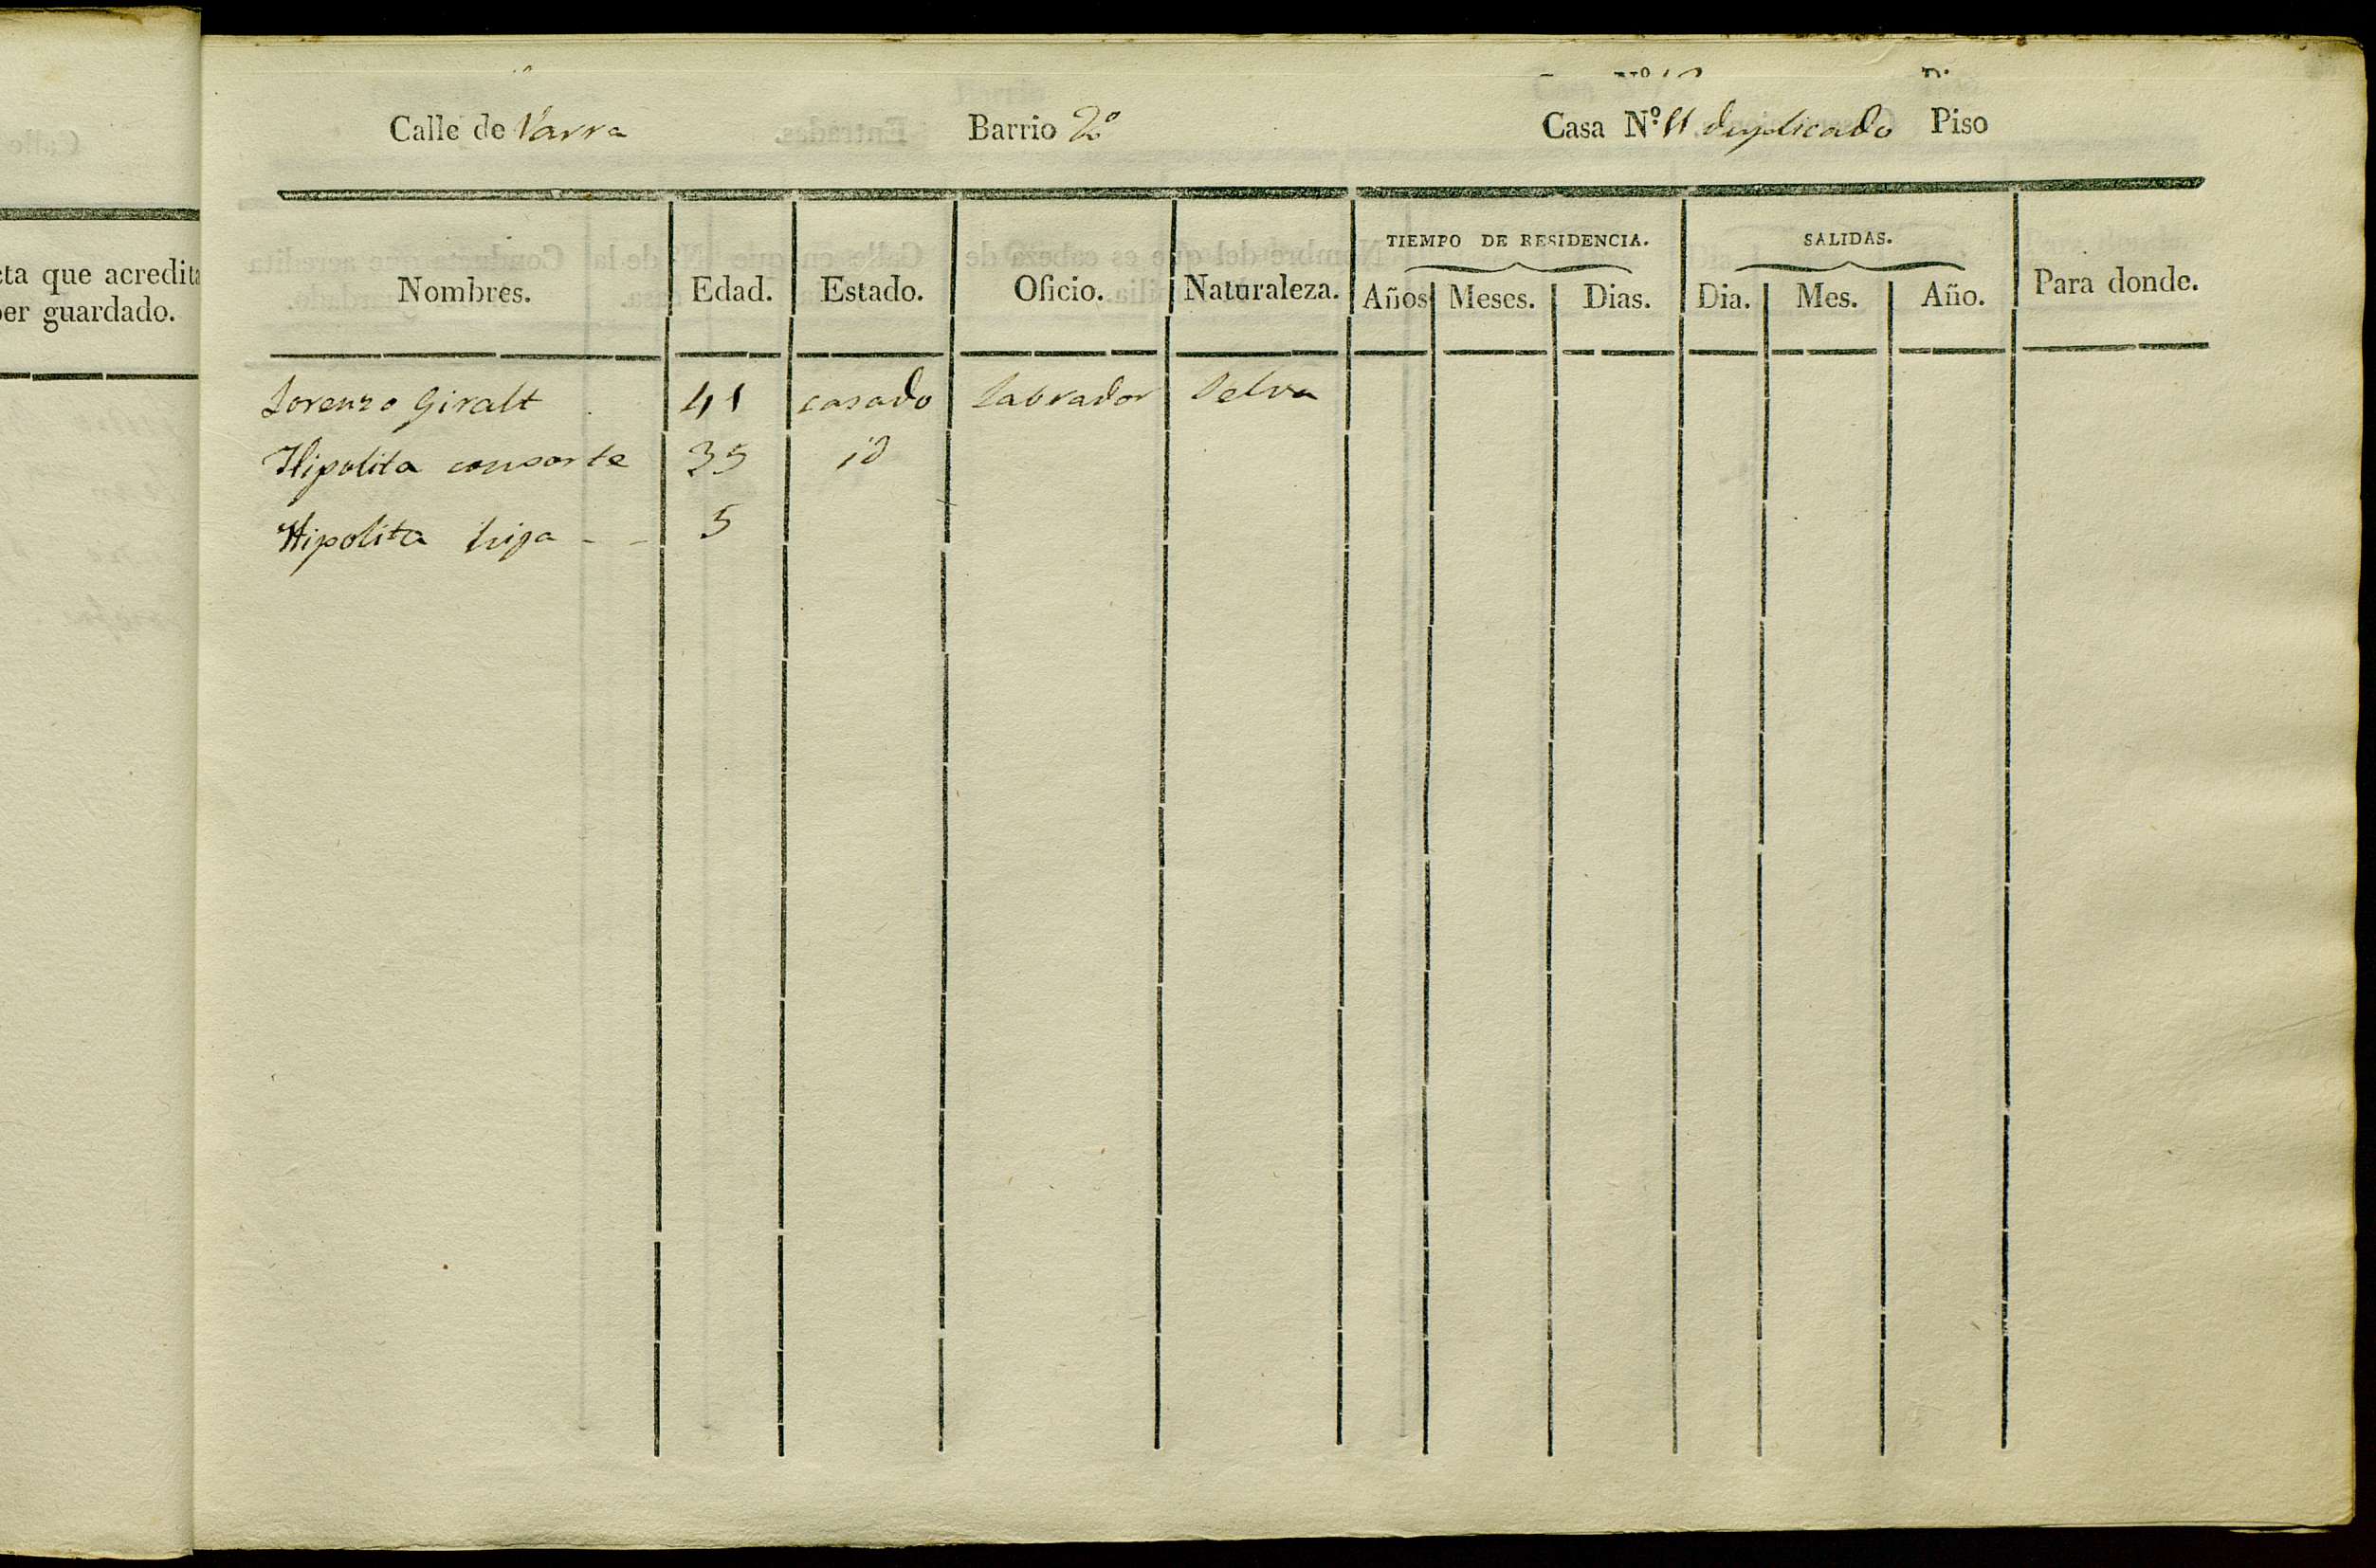 Calle de Varra Barrio 2º Casa Nº 11 duplicado Piso
cta que acredita
ber guardado.
TIEMPO DE RESIDENCIA. SALIDAS.
Nombres. Edad. Estado. Oficio. Naturaleza. Años Meses. Dias. Dia. Mes. Año. Para donde.
Lorenzo Giralt 41 casado labrador Selva
Hipolita consorte 35 id
Hipolita hija - - 5